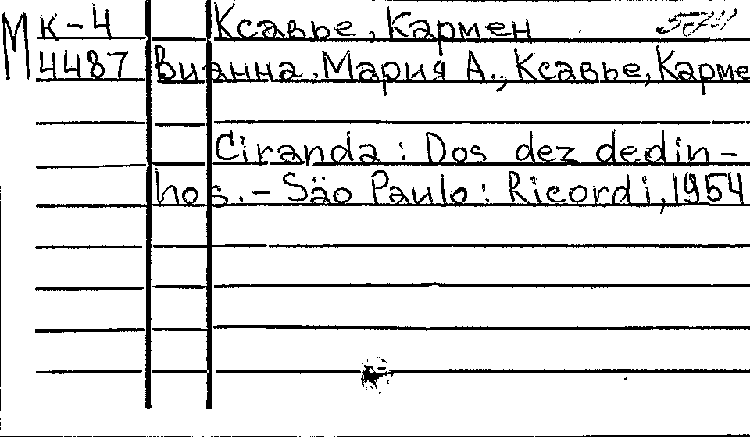 М к-4 Ксавье, Кармен
4487 Вианна, Мария А., Ксавье, Карме
Ciranda : Dos dez dedin-
hos. - São Paulo : Ricordi, 1954